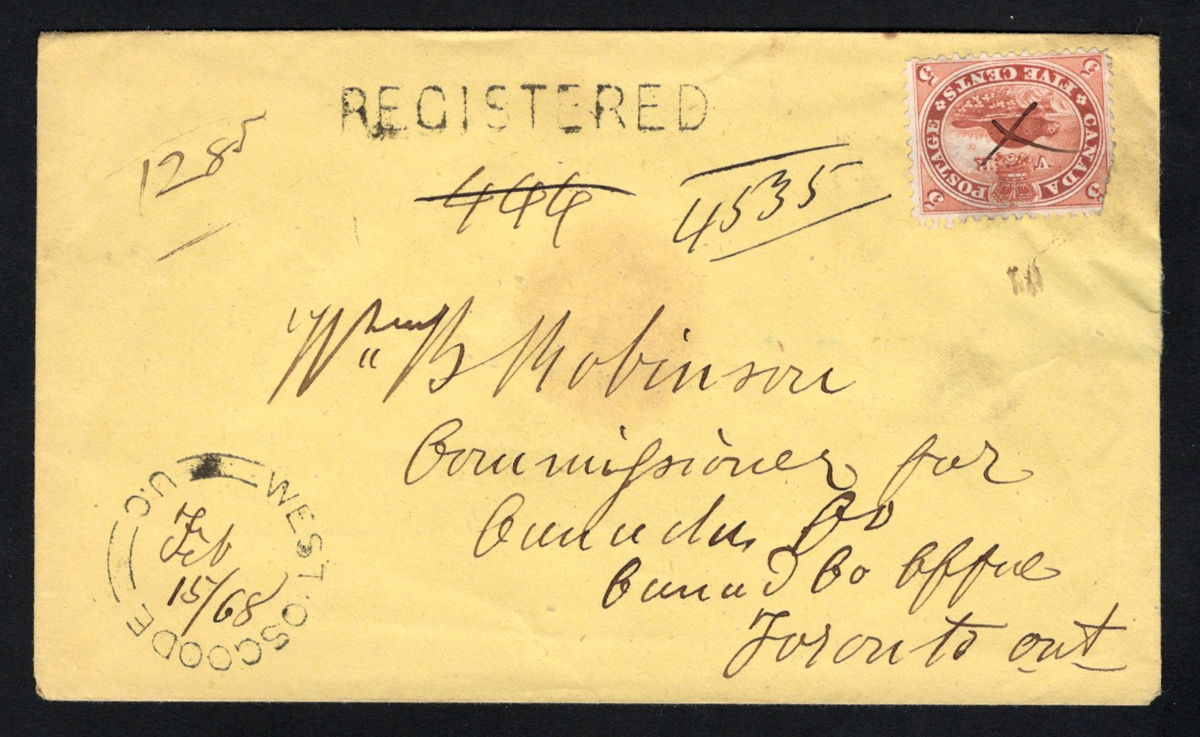 REGISTERED
1285
444
4535
5 FIVE CENTS 5
CANADA POSTAGE
V
5 5
Wm B Robinson
Commissioner for
Canada Co
Canad Co Office
Toronto ont
WEST OSGOODE U.C
Feb
15/68